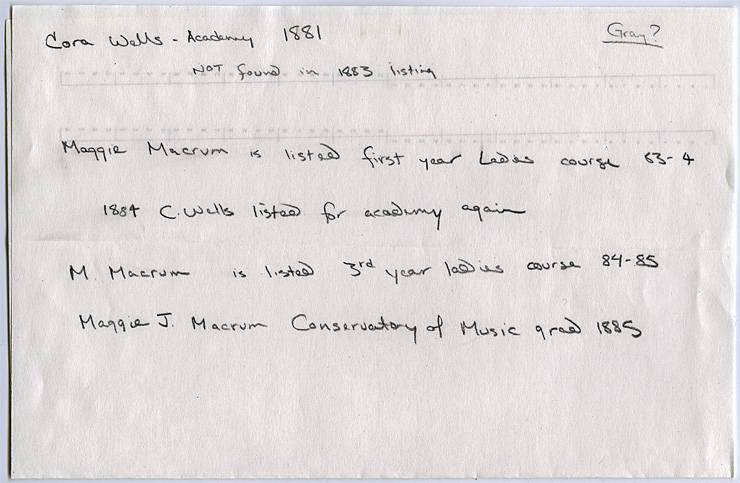 Cora Wells - Academy 1881
Gray?
NOT found in 1883 listing
Maggie Macrum is listed first year Ladies course 83-4
1884 C. Wells listed for academy again
M. Macrum is listed 3rd year ladies course 84-85
Maggie J. Macrum Conservatory of Music grad 1885